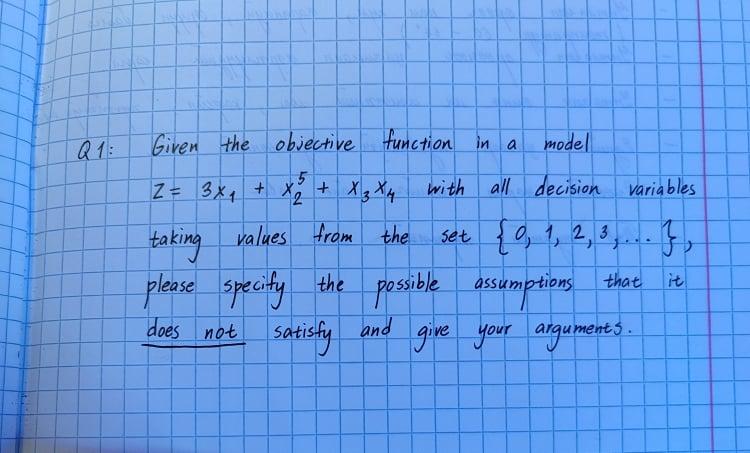 Q1: Given the objective function in a model
Z = 3x₁ + x₂⁵ + x₃x₄ with all decision variables
taking values from the set {0, 1, 2, 3, ...},
please specify the possible assumptions that it
does not satisfy and give your arguments.